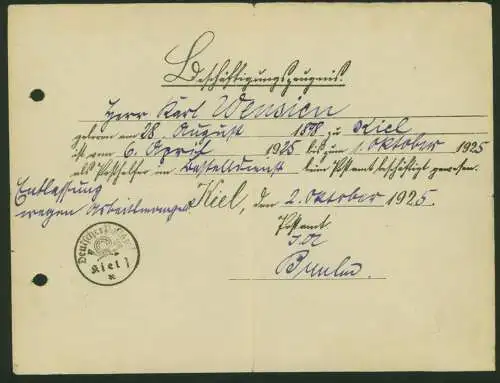 Beschäftigungszeugnis.
Herr Karl Wensien
geboren am 28. August 1898 zu Kiel
ist vom 6. April 1925 bis zum 1. Oktober 1925
als Posthelfer im Bestelldienst beim Postamt beschäftigt gewesen.
Entlassung
wegen Arbeitsmangel.
Kiel, den 2. Oktober 1925.
Postamt
I A
Kiel 1